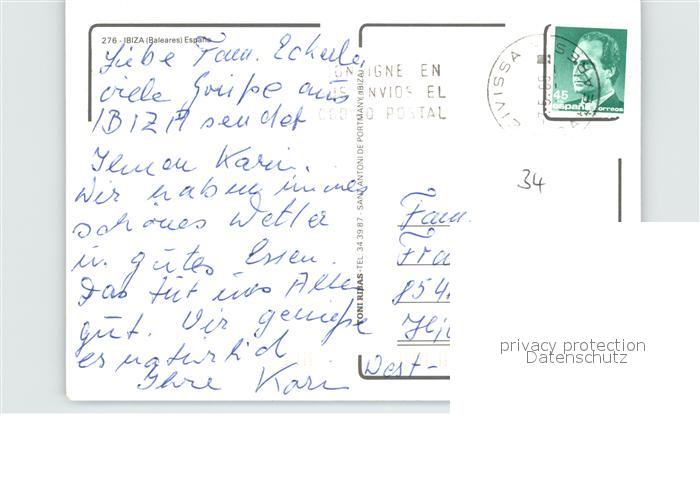 276 - IBIZA (Baleares) España
Liebe Fam. Eckerle,
viele Grüße aus
IBIZA sendet
Ihnen Karin.
Wir haben immer
schönes Wetter
u. gutes Essen.
Das tut uns Allen
gut. Wir genieße
es natürlich
Ihre Karin
TONI RIBAS - TEL. 34 39 87 - SAN ANTONI DE PORTMANY (IBIZA)
CONSIGNE EN
SUS ENVIOS EL
CODIGO POSTAL
EIVISSA
BALEARES
45
españa correos
34
Fam.
Fra
854
West-
privacy protection
Datenschutz